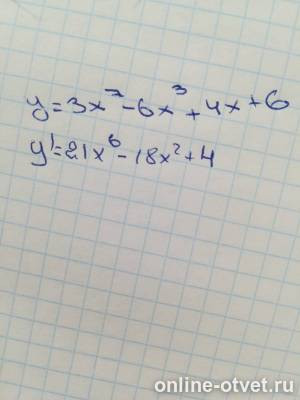 y=3x⁷-6x³+4x+6
y'=21x⁶-18x²+4
online-otvet.ru